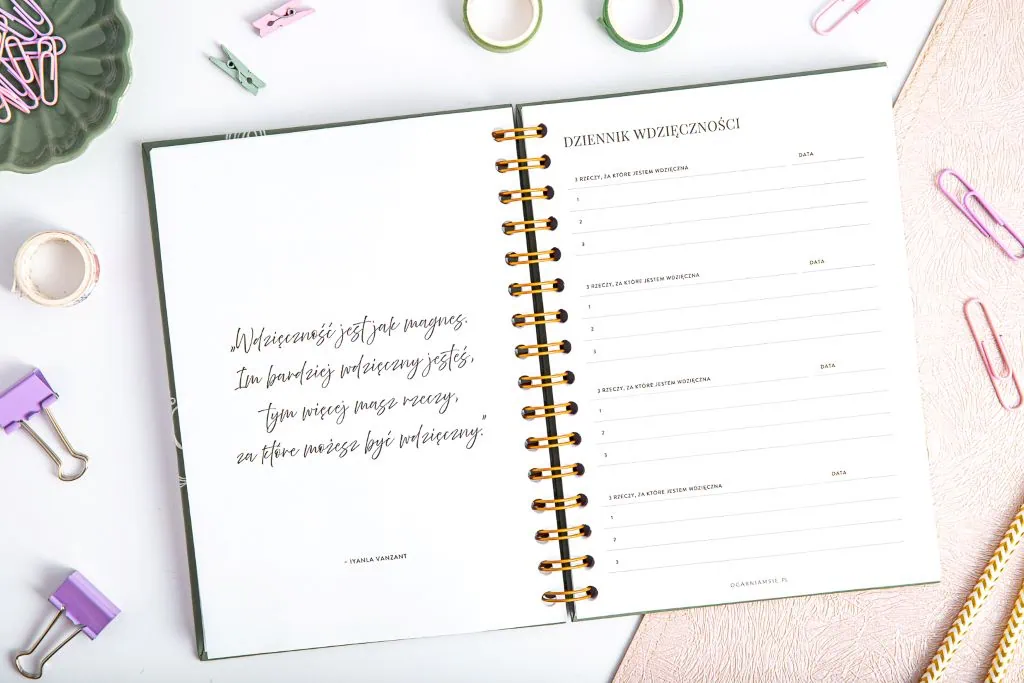 „Wdzięczność jest jak magnes.
Im bardziej wdzięczny jesteś,
tym więcej masz rzeczy,
za które możesz być wdzięczny.”
- IYANLA VANZANT
DZIENNIK WDZIĘCZNOŚCI
3 RZECZY, ZA KTÓRE JESTEM WDZIĘCZNA DATA
1
2
3
3 RZECZY, ZA KTÓRE JESTEM WDZIĘCZNA DATA
1
2
3
3 RZECZY, ZA KTÓRE JESTEM WDZIĘCZNA DATA
1
2
3
3 RZECZY, ZA KTÓRE JESTEM WDZIĘCZNA DATA
1
2
3
OGARNIAMSIE.PL